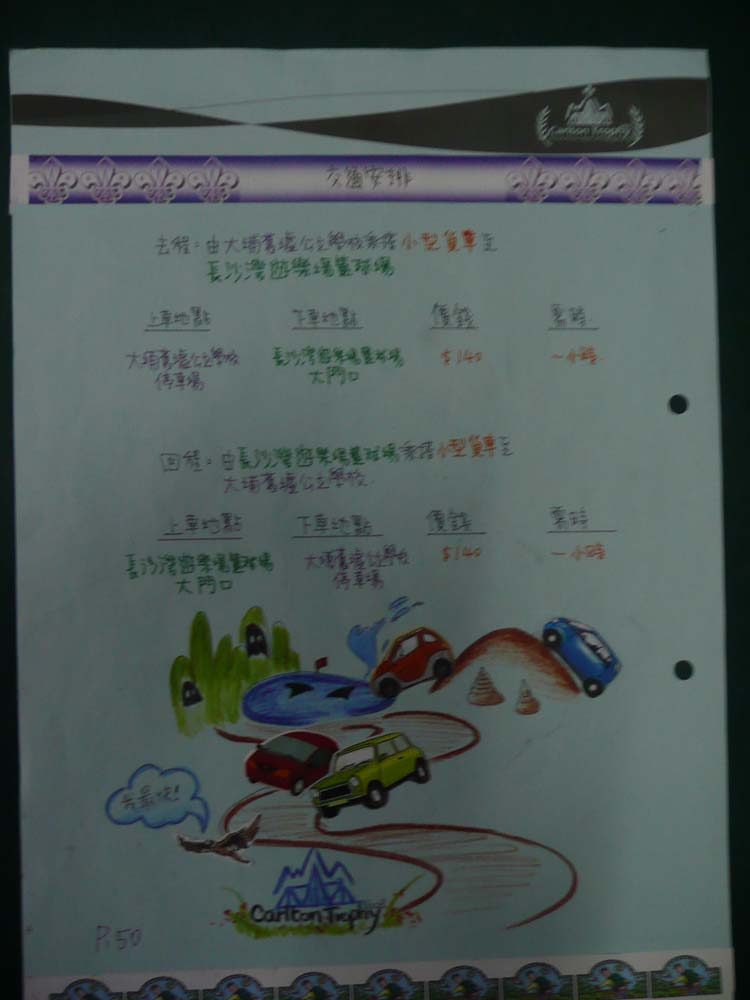 Carlton Trophy
交通安排
去程：由大埔舊墟公立學校乘搭小型貨車至
長沙灣遊樂場籃球場
上車地點 下車地點 價錢 需時
大埔舊墟公立學校 長沙灣遊樂場籃球場 $140 一小時
停車場 大門口
回程：由長沙灣遊樂場籃球場乘搭小型貨車至
大埔舊墟公立學校.
上車地點 下車地點 價錢 需時
長沙灣遊樂場籃球場 大埔舊墟公立學校 $140 一小時
大門口 停車場
我最快!
Carlton Trophy
P.50